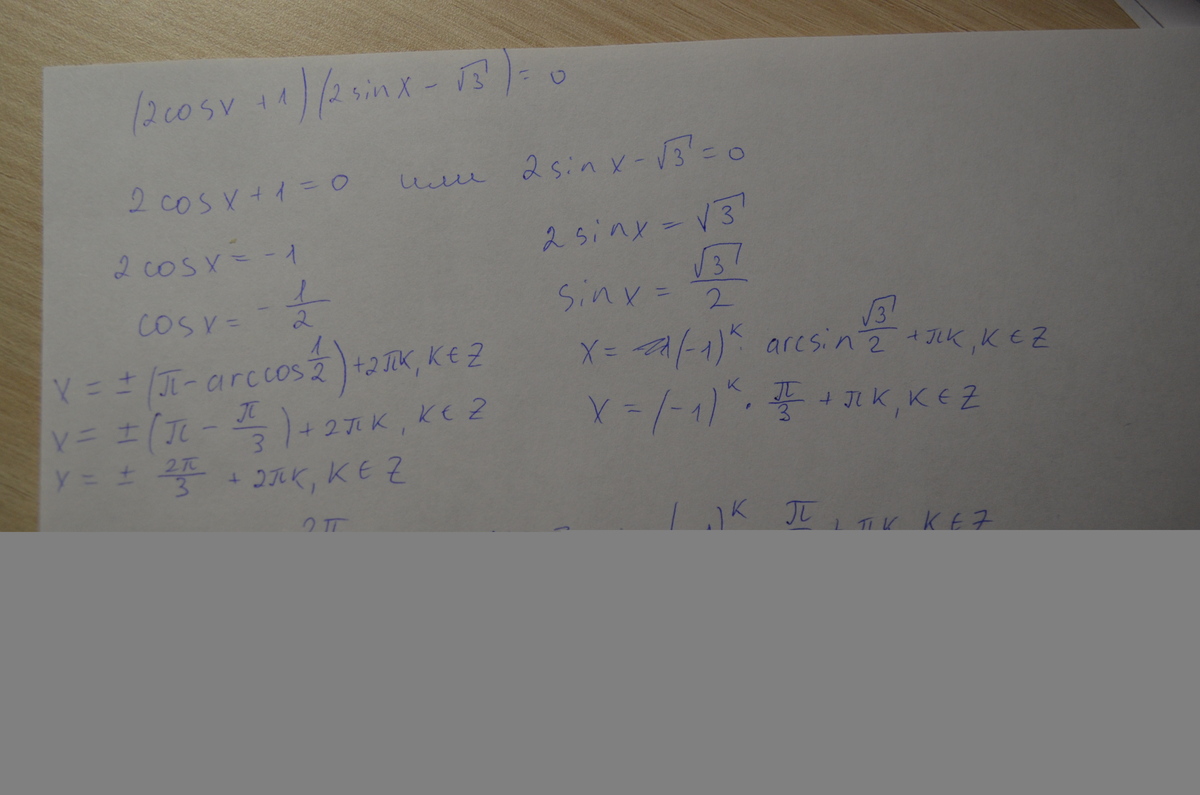 (2cosx + 1)(2sinx - √3) = 0
2cosx + 1 = 0 или 2sinx - √3 = 0
2cosx = -1
2sinx = √3
cosx = -1/2
sinx = √3/2
x = ±(π - arccos 1/2) + 2πk, k ∈ Z
x = (-1)^k · arcsin √3/2 + πk, k ∈ Z
x = ±(π - π/3) + 2πk, k ∈ Z
x = (-1)^k · π/3 + πk, k ∈ Z
x = ± 2π/3 + 2πk, k ∈ Z